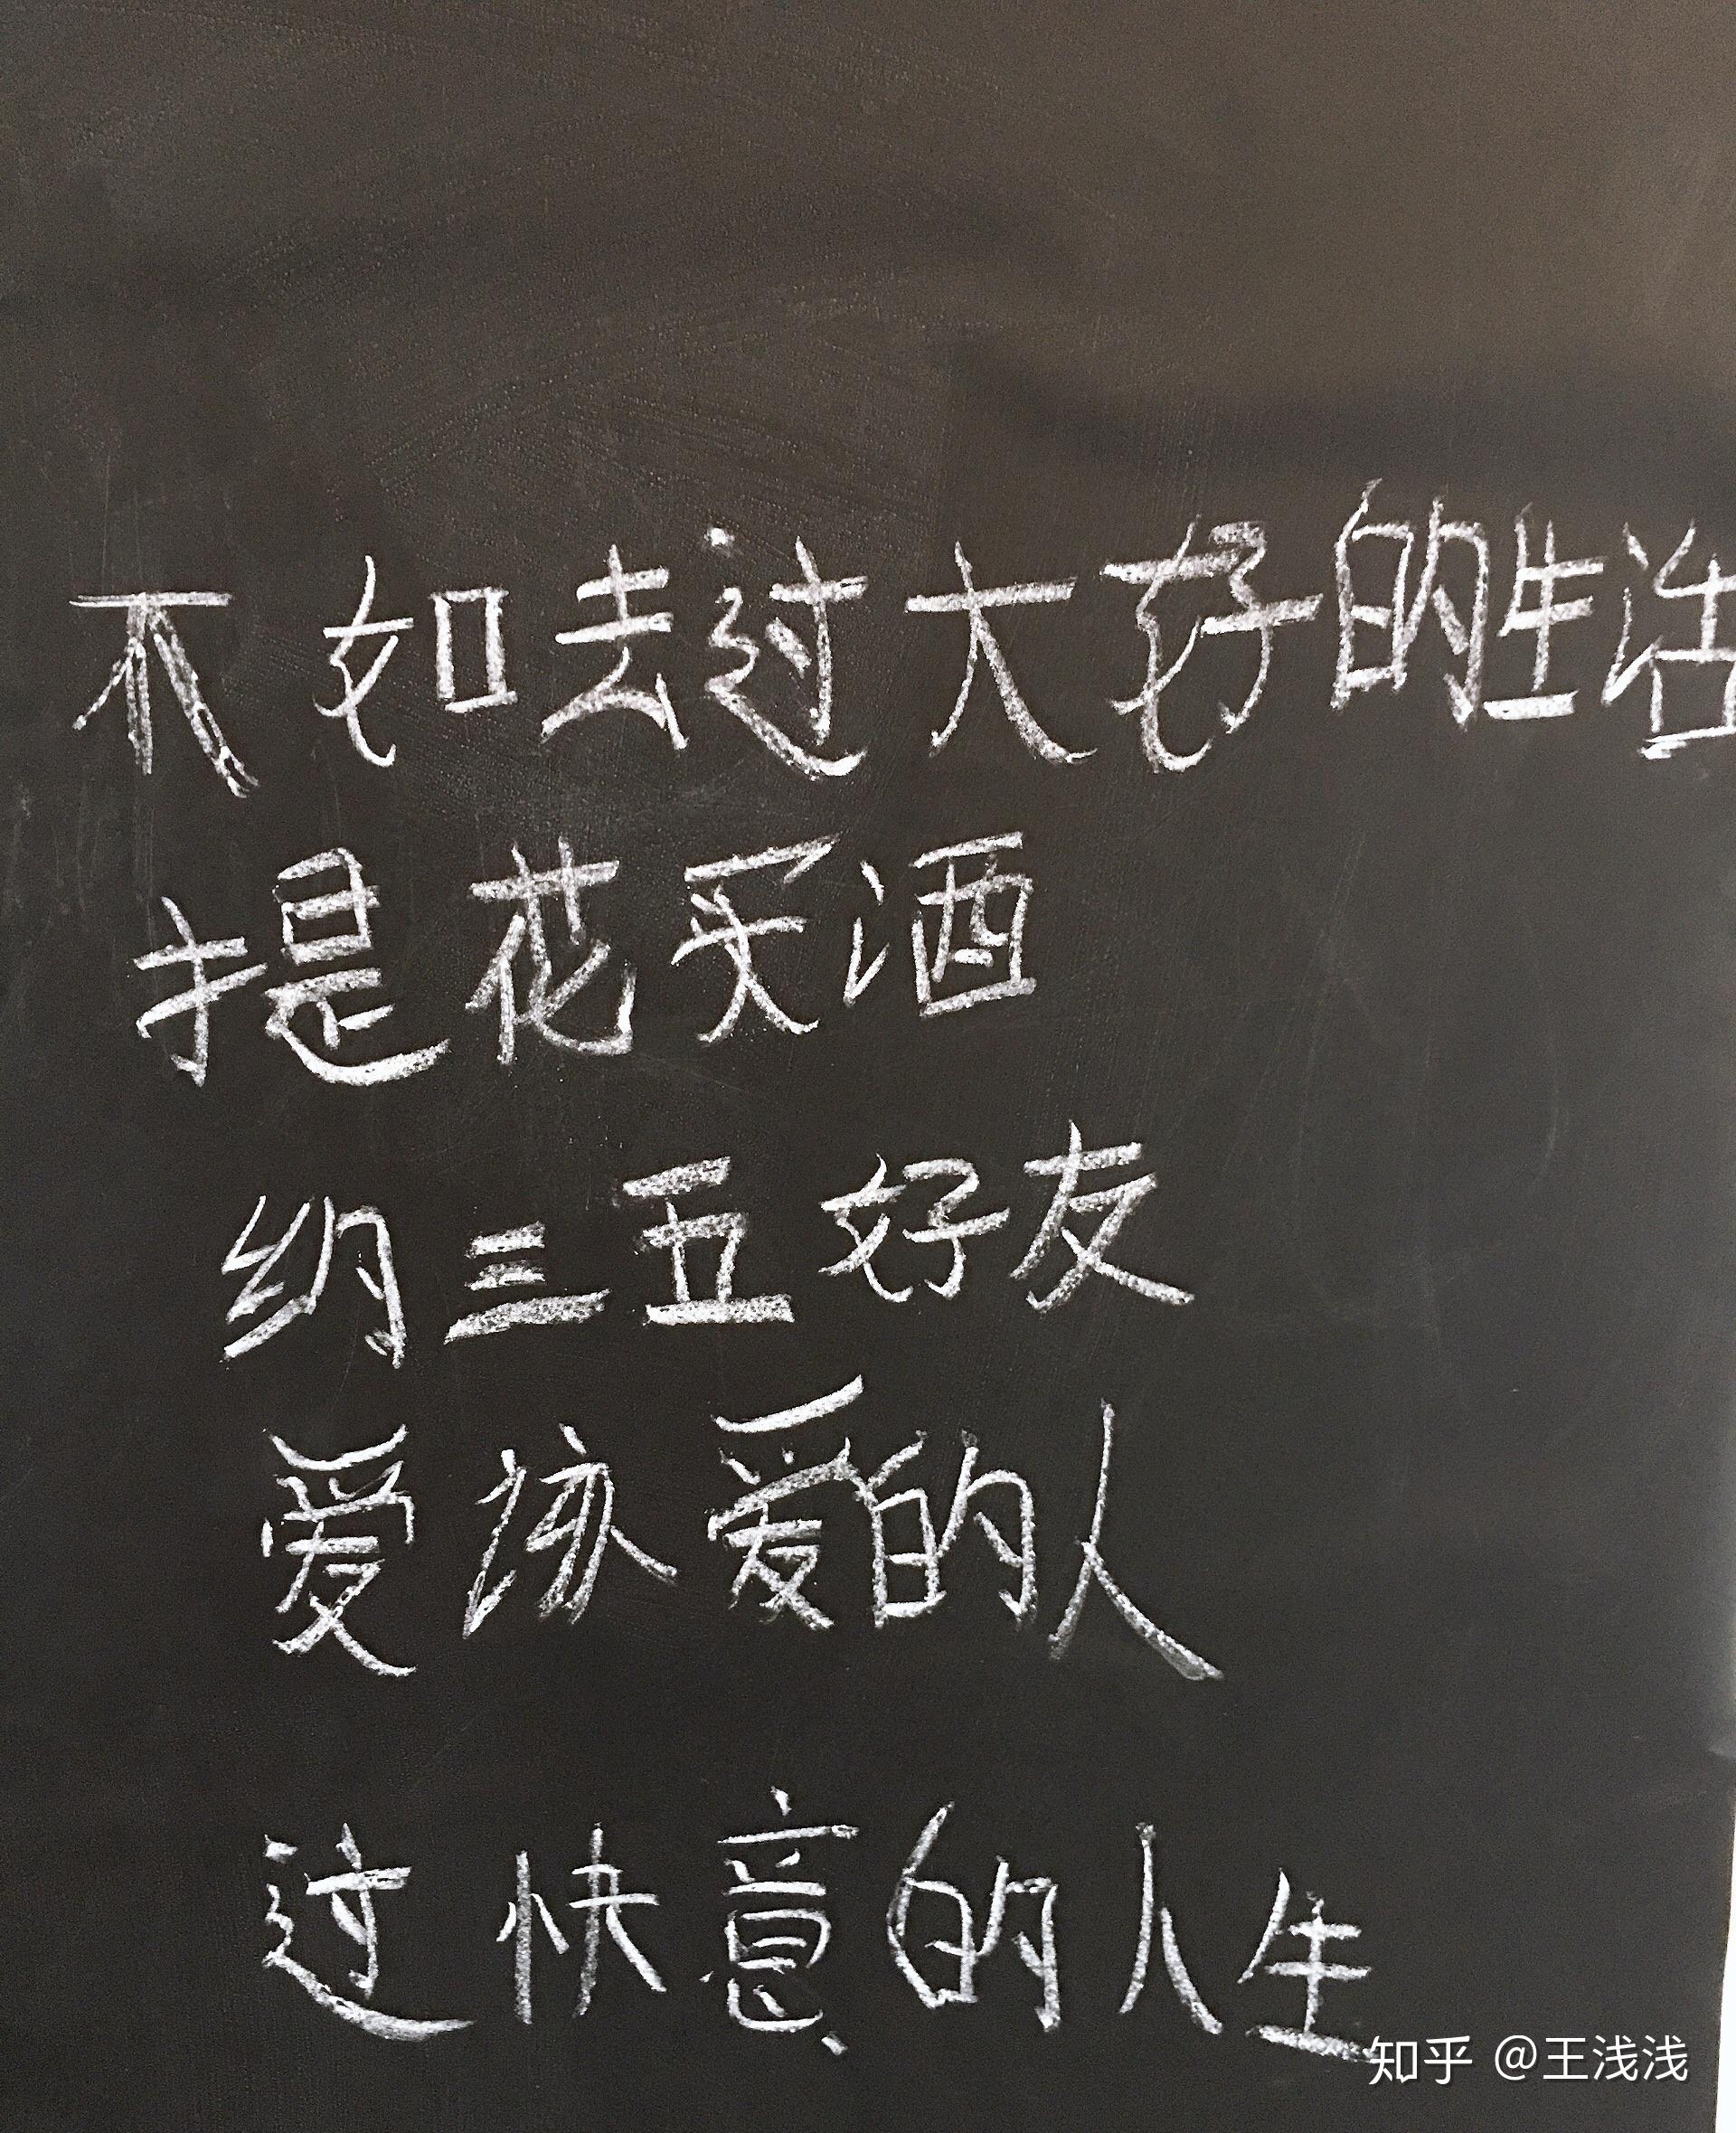 不如去过大好的生活
提花买酒
约三五好友
爱该爱的人
过快意的人生
知乎 @王浅浅